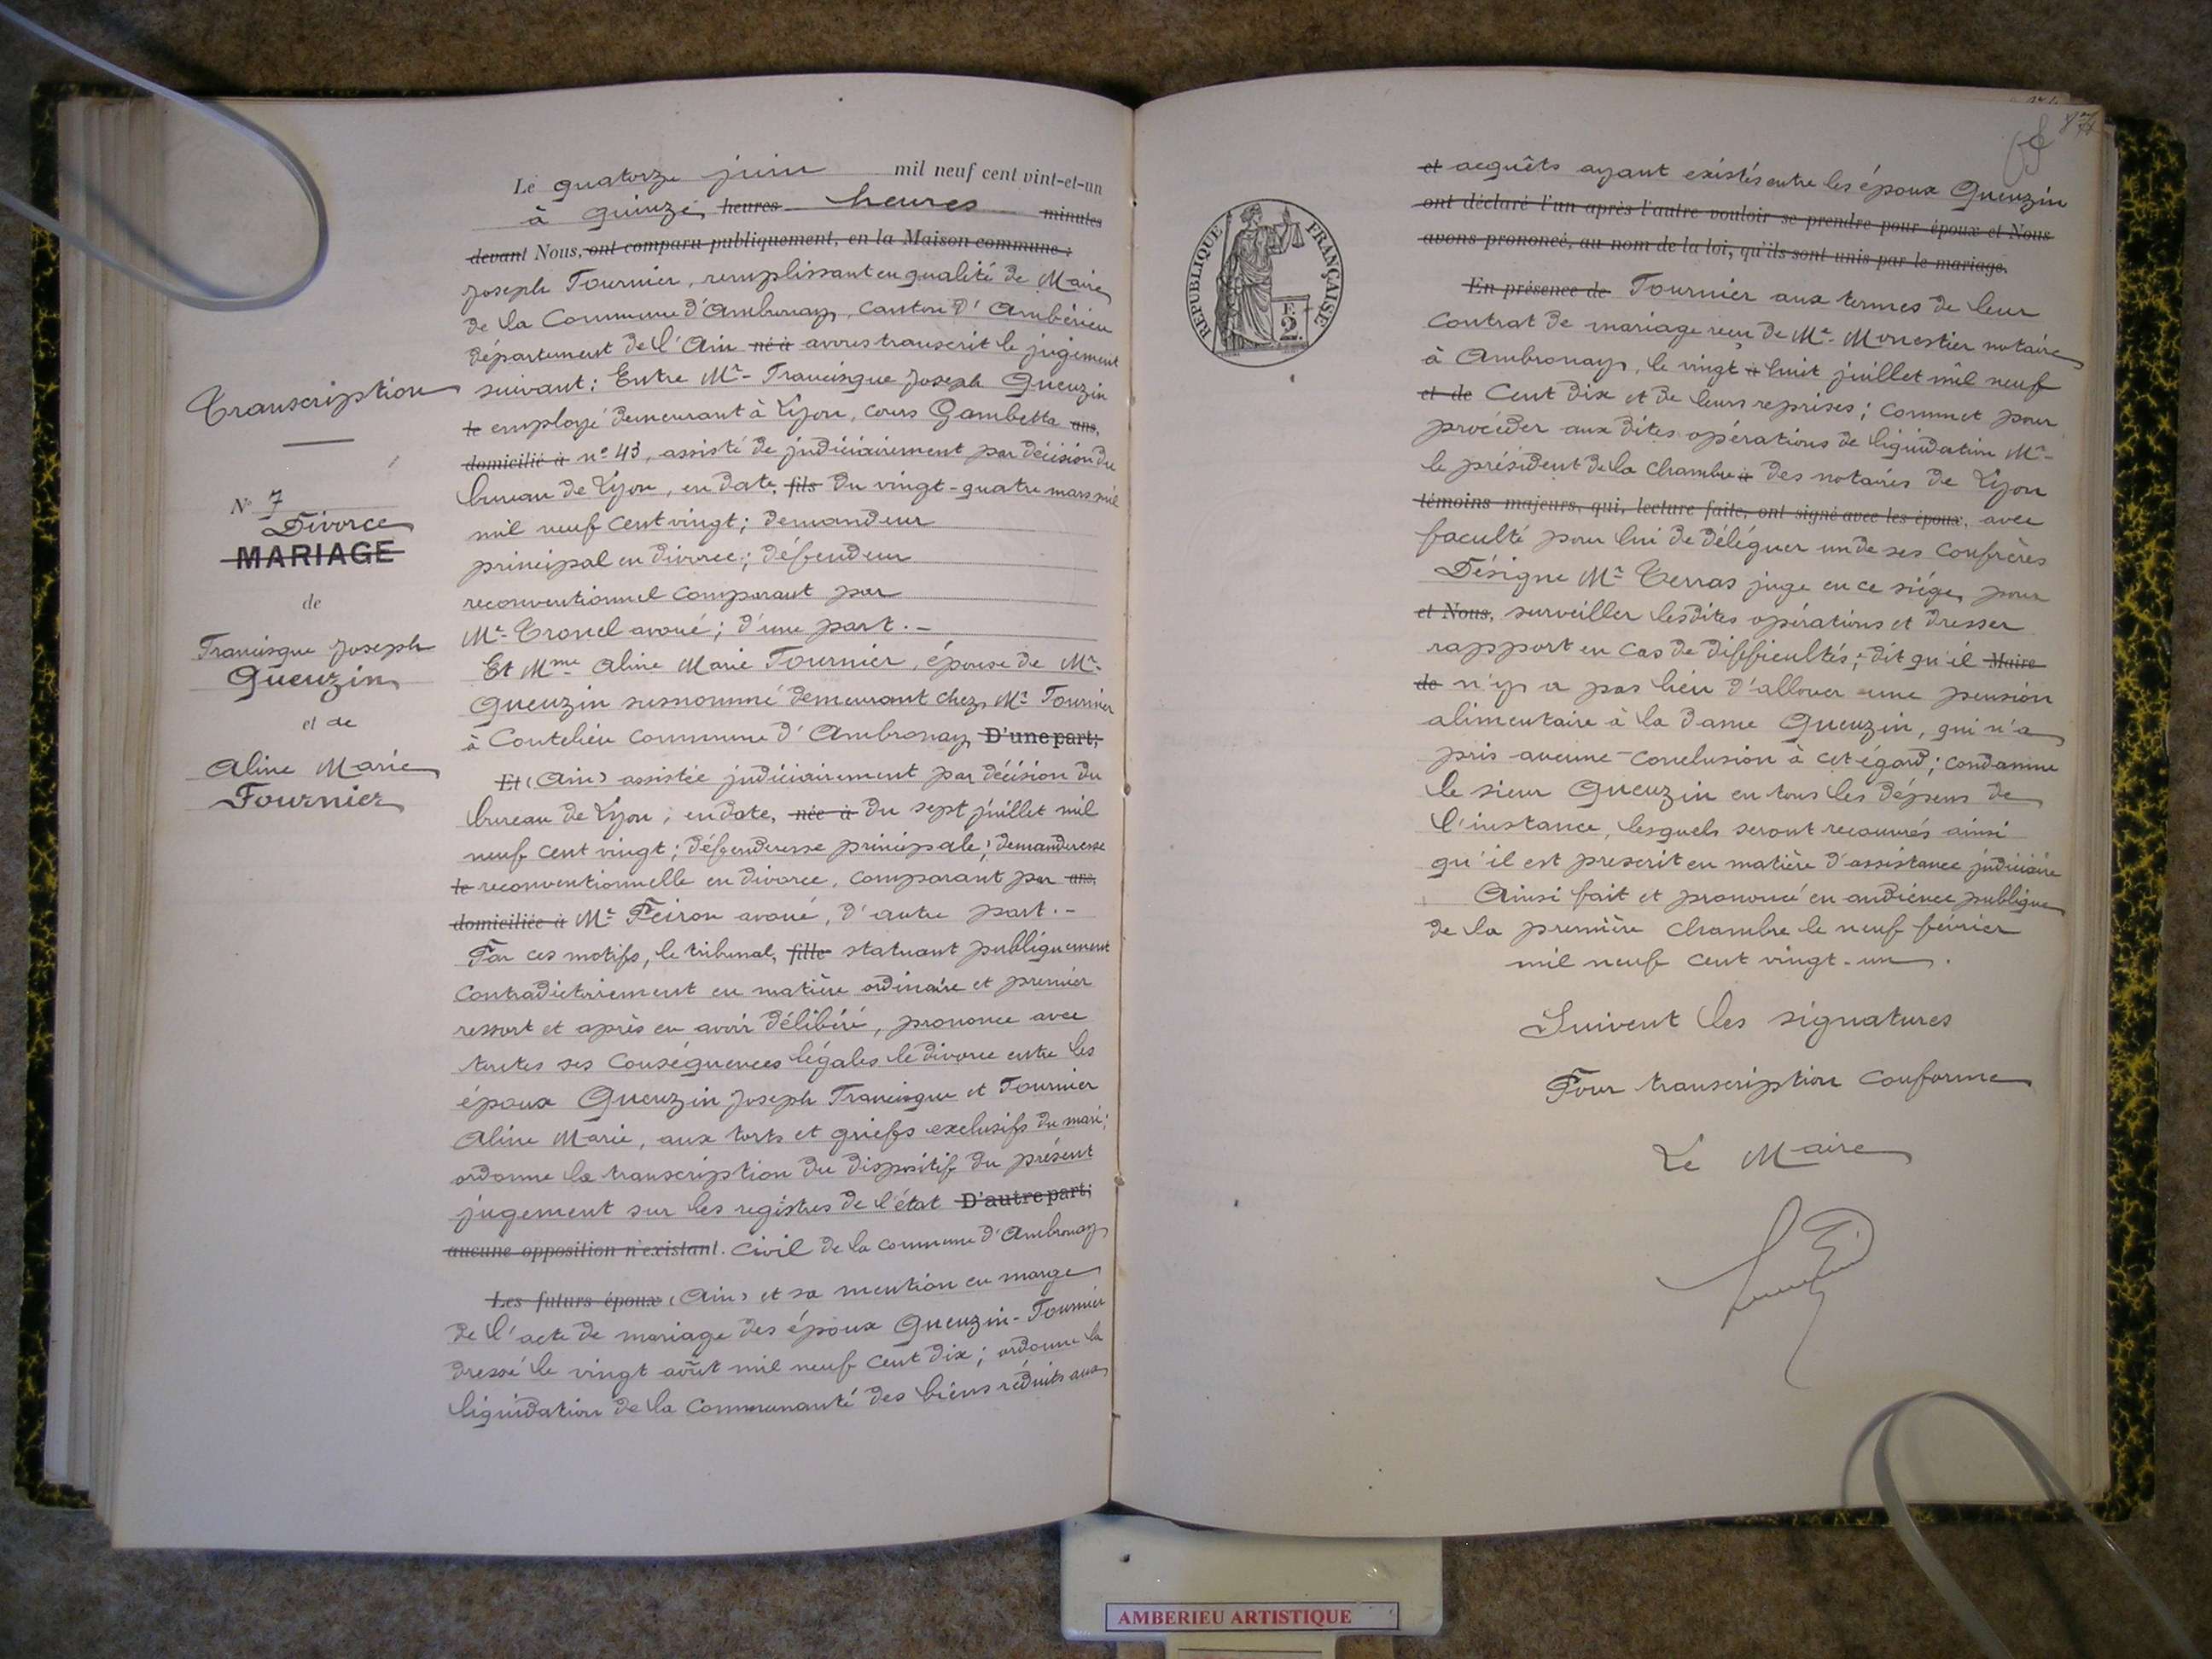 Transcription
N° 7
Divorce
MARIAGE
de
Francisque Joseph
Gueuzin
et de
Aline Marie
Fournier
Le quatorze juin mil neuf cent vint-et-un
à quinze heures heures minutes
devant Nous, ont comparu publiquement, en la Maison commune :
Joseph Fournier, remplissant en qualité de Maire
de la Commune d'Ambronay, canton d'Ambérieu
département de l'Ain né à avons transcrit le jugement
suivant : Entre Mr Francisque Joseph Gueuzin
le employé demeurant à Lyon, cours Gambetta ans,
domicilié à n° 43, assisté de judiciairement par décision du
bureau de Lyon, en date, fils du vingt-quatre mars mil
mil neuf cent vingt ; demandeur
principal en divorce ; défendeur
reconventionnel comparant par
Me Tronel avoué ; d'une part.-
Et Mme Aline Marie Fournier, épouse de Mr
Gueuzin susnommé demeurant chez Mr Fournier
à Coutelieu commune d'Ambronay D'une part;
Et (Ain) assistée judiciairement par décision du
bureau de Lyon ; en date, née à du sept juillet mil
neuf cent vingt ; défenderesse principale ; demanderesse
le reconventionnelle en divorce, comparant par ans,
domiciliée à Me Peiron avoué, d'autre part.-
Par ces motifs, le tribunal, fille statuant publiquement
contradictoirement en matière ordinaire et premier
ressort et après en avoir délibéré, prononce avec
toutes ses conséquences légales le divorce entre les
époux Gueuzin Joseph Francisque et Fournier
Aline Marie, aux torts et griefs exclusifs du mari ;
ordonne la transcription du dispositif du présent
jugement sur les registres de l'état D'autre part;
aucune opposition n'existant. civil de la commune d'Ambronay
Les futurs époux (Ain) et sa mention en marge
de l'acte de mariage des époux Gueuzin-Fournier
dressé le vingt août mil neuf cent dix ; ordonne la
liquidation de la communauté des biens réduits aux
87
REPUBLIQUE FRANÇAISE
E
2
et acquêts ayant existés entre les époux Gueuzin
ont déclaré l'un après l'autre vouloir se prendre pour époux et Nous
avons prononcé, au nom de la loi, qu'ils sont unis par le mariage.
En présence de Fournier aux termes de leur
contrat de mariage reçu de Me Monestier notaire
à Ambronay, le vingt à huit juillet mil neuf
et de Cent dix et de leurs reprises ; commet pour
procéder aux dites opérations de liquidation Mr
le président de la chambre à des notaires de Lyon
témoins majeurs, qui, lecture faite, ont signé avec les époux, avec
faculté pour lui de déléguer un de ses confrères
Désigne Mr Terras juge en ce siége, pour
et Nous, surveiller lesdites opérations et dresser
rapport en cas de difficultés ; dit qu'il Maire
de n'y a pas lieu d'allouer une pension
alimentaire à la dame Gueuzin, qui n'a
pris aucune conclusion à cet égard ; condamne
le sieur Gueuzin en tous les dépens de
l'instance, lesquels seront recouvrés ainsi
qu'il est prescrit en matière d'assistance judiciaire
Ainsi fait et prononcé en audience publique
de la première chambre le neuf février
mil neuf cent vingt-un.
Suivent les signatures
Pour transcription conforme
Le Maire
AMBERIEU ARTISTIQUE